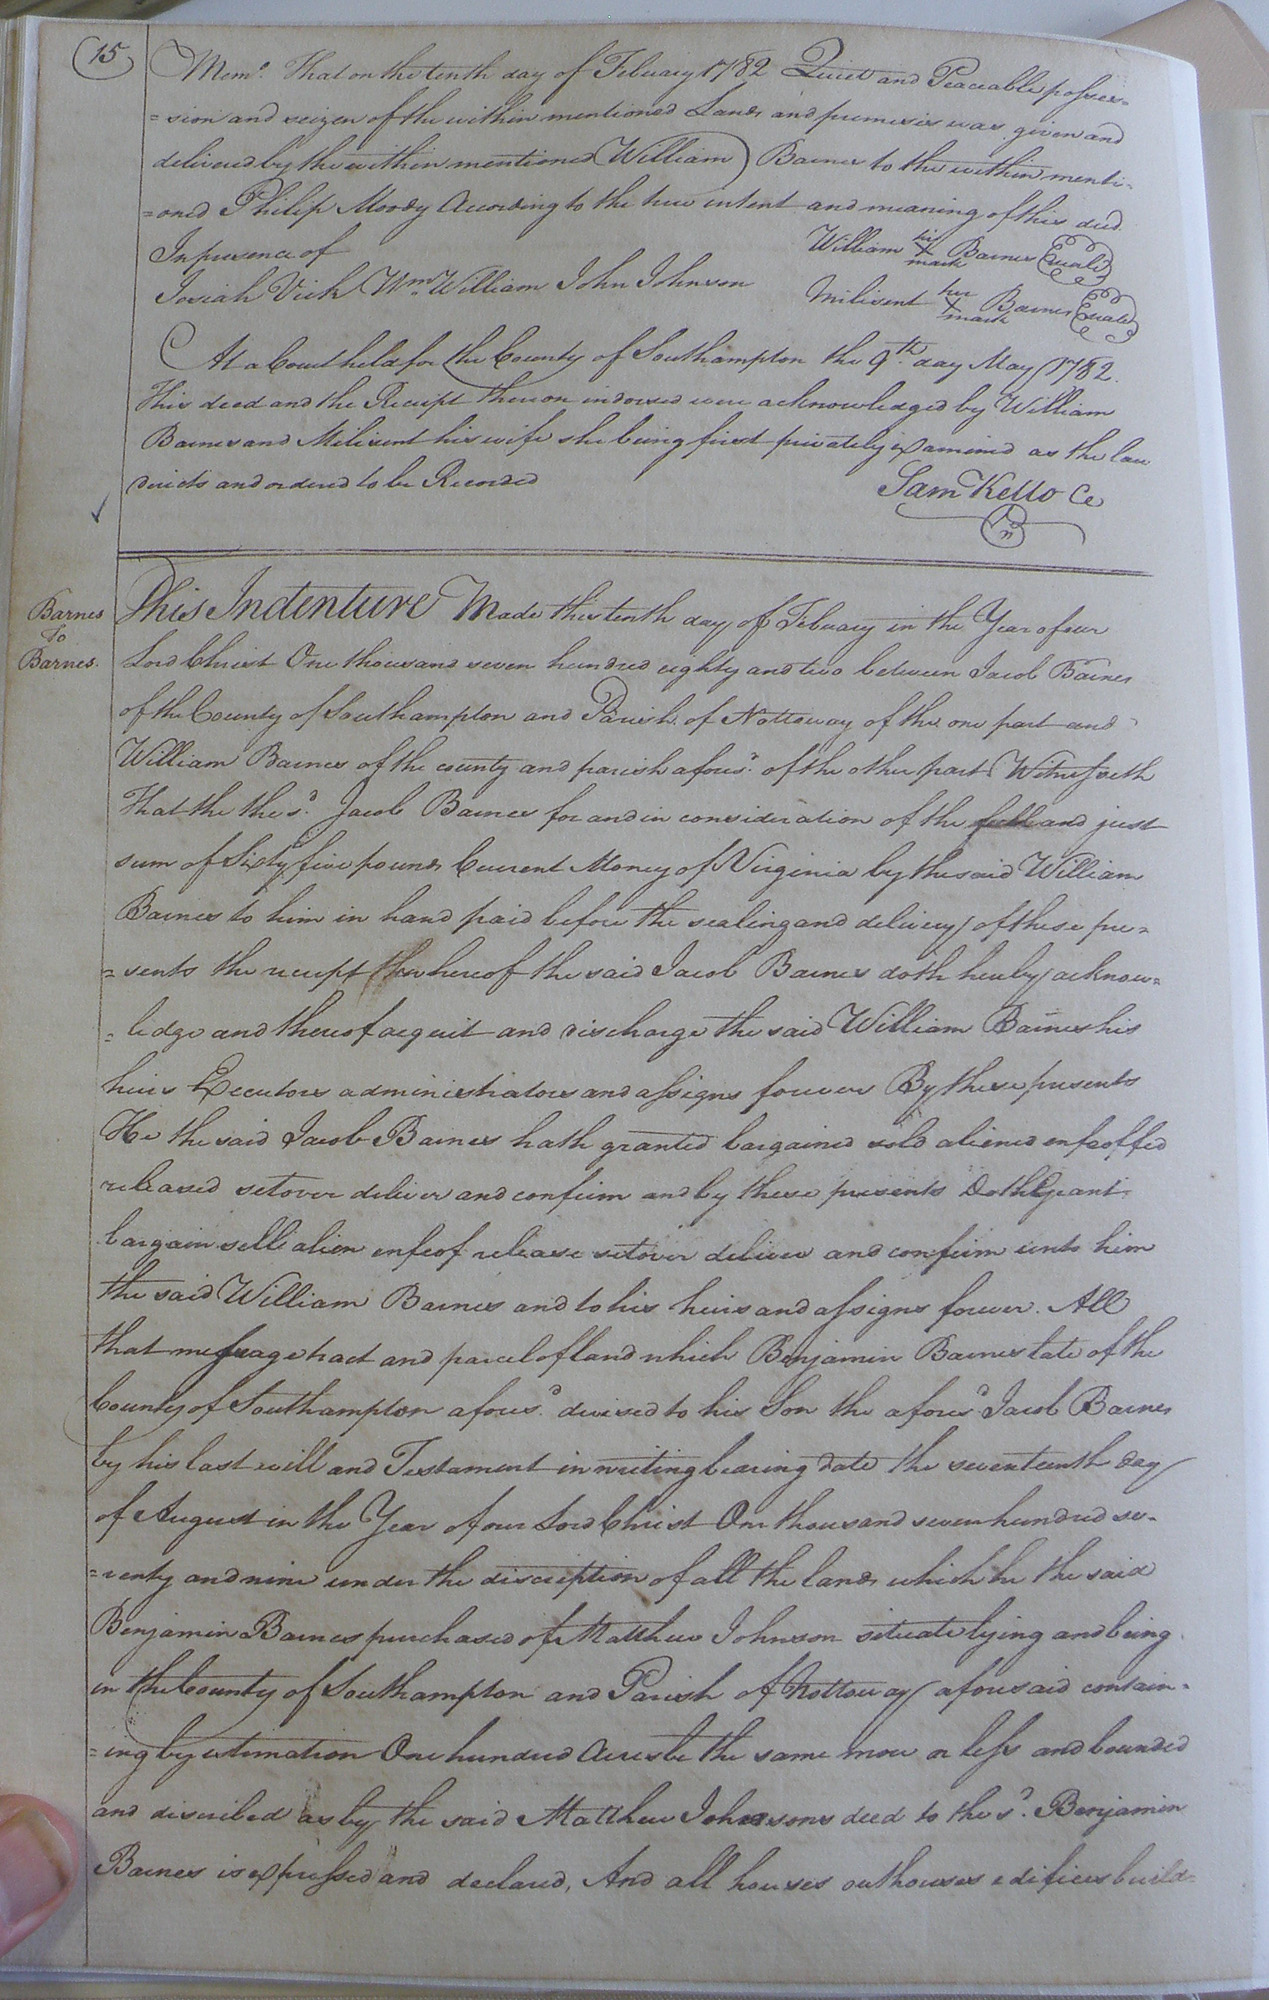 15
Memo. That on the tenth day of Febuary 1782 Quiet and Peaceable posses=
=sion and seizen of the within mentioned Lands and premises was given and
delivered by the within mentioned William Barnes to the within menti=
=oned Philip Moody According to the true intent and meaning of this deed.
In presence of
William his X mark Barnes (Seald)
Josiah Vick Wm. William John Johnson
Milisent her X mark Barnes (Seald)
At a Court held for the County of Southampton the 9th day May 1782.
This deed and the Receipt thereon indorsed were acknowledged by William
Barnes and Milisent his wife she being first privately examined as the law
directs and ordered to be Recorded
Sam Kello Ce
Barnes
To
Barnes.
This Indenture Made this tenth day of Febuary in the Year of our
Lord Christ One thousand seven hundred eighty and two between Jacob Barnes
of the County of Southampton and Parish of Nottoway of the one part and
William Barnes of the county and parish afores.d of the other part Witnesseth
That the the s.d Jacob Barnes for and in consideration of the full and just
sum of Sixty five pounds Current Money of Virginia by the said William
Barnes to him in hand paid before the sealing and delivery of these pre=
=sents the receipt whereof the said Jacob Barnes doth hereby acknow=
=ledge and thereof acquit and discharge the said William Barnes his
heirs Executors administrators and assigns forever By these presents
He the said Jacob Barnes hath granted bargained sold aliened enfeoffed
released setover deliver and confirm and by these presents Doth Grant
bargain sell alien enfeof release setover deliver and confirm unto him
the said William Barnes and to his heirs and assigns forever. All
that messuage tract and parcel of land which Benjamin Barnes late of the
County of Southampton afores.d devised to his Son the afores.d Jacob Barnes
by his last will and Testament in writing bearing date the seventeenth day
of August in the Year of our Lord Christ One thousand seven hundred se=
=venty and nine under the discription of all the lands which he the said
Benjamin Barnes purchased of Matthew Johnson situate lying and being
in the County of Southampton and Parish of Nottoway aforesaid contain=
=ing by estimation One hundred Acres be the same more or less and bounded
and discribed as by the said Matthew Johnsons deed to the s.d Benjamin
Barnes is expressed and declared, And all houses outhouses edifices build=